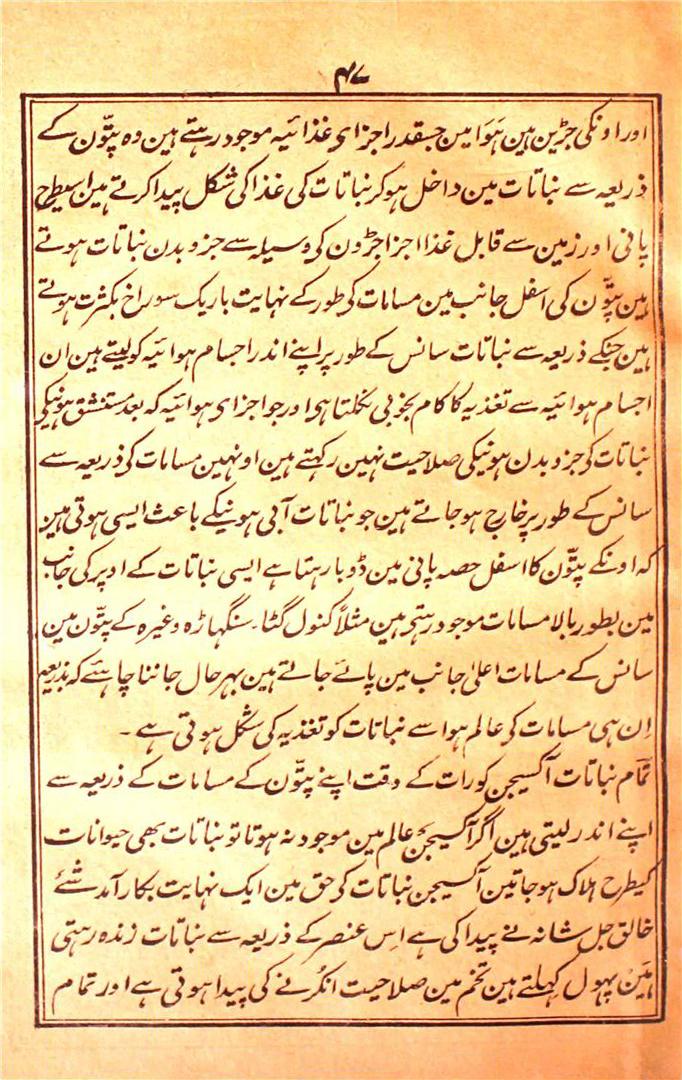 ۴۷
اور اونکی جڑین ہین ہَوَا مین جسقدر اجزای غذائیہ موجود رہتے ہین وہ پتّون کے
ذریعہ سے نباتات مین داخل ہوکر نباتات کی غذا کی شکل پیدا کرتے ہین اسیطرح
پانی اور زمین سے قابل غذا اجزا جڑون کے وسیلہ سے جزو بدن نباتات ہوتے
ہین پتّون کی اسفل جانب مین مسامات کی طور کے نہایت باریک سوراخ بکثرت ہوتے
ہین جنکے ذریعہ سے نباتات سانس کے طور پر اپنے اندر اجسام ہوائیہ کو لیتے ہین ان
اجسام ہوائیہ سے تغذیہ کا کام بخوبی نکلتا ہی اور جو اجزای ہوائیہ کہ بعد مستنشق ہونیکی
نباتات کی جزو بدن ہونیکی صلاحیت نہین رکہتے ہین اونہین مسامات کی ذریعہ سے
سانس کے طور پر خارج ہو جاتے ہین جو نباتات آبی ہونیکے باعث ایسی ہوتی ہین
کہ اونکے پتّون کا اسفل حصہ پانی مین ڈوبا رہتا ہے ایسی نباتات کے اوپر کی جانب
مین بطور بالا مسامات موجود رہتی ہین مثلاً کنول گٹا۔ سنگہاڑہ وغیرہ کے پتّون مین
سانس کے مسامات اعلیٰ جانب مین پائے جاتے ہین بہرحال جاننا چاہئے کہ بذریعہ
اِن ہی مسامات کی عالم ہوا سے نباتات کو تغذیہ کی شکل ہوتی ہے ۔
تمام نباتات آکسیجن کو رات کے وقت اپنے پتّون کے مسامات کے ذریعہ سے
اپنے اندر لیتی ہین اگر آکسیجن عالم مین موجود نہ ہوتا تو نباتات بھی حیوانات
کیطرح ہلاک ہو جاتین آکسیجن نباتات کی حق مین ایک نہایت بکار آمد شئے
خالق جل شانہ نے پیدا کی ہے اِس عنصر کے ذریعہ سے نباتات زندہ رہتی
ہین پہول کہلتے ہین تخم مین صلاحیت انکُرنے کی پیدا ہوتی ہے اور تمام